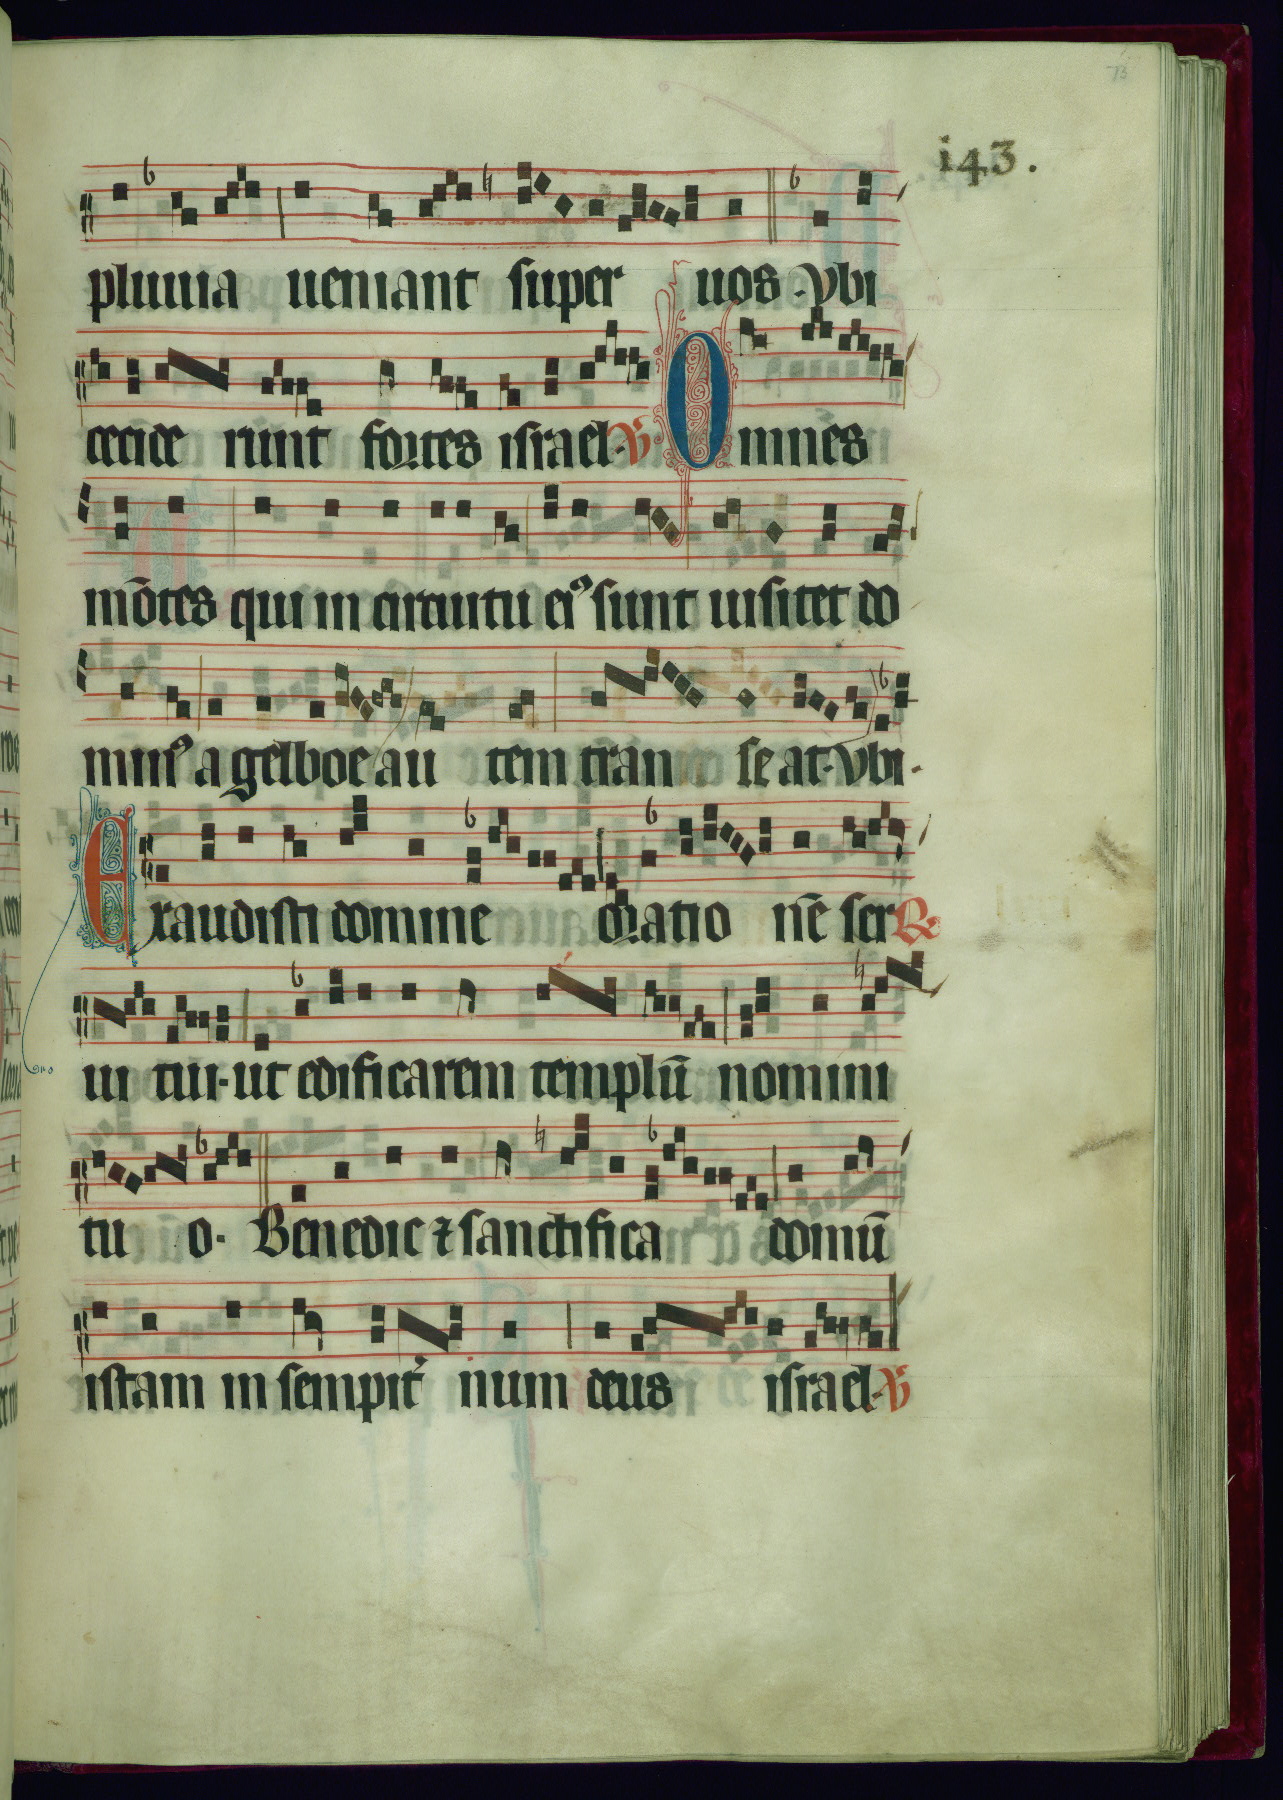 73
i43.
pluuia ueniant super uos · vbi
cecide runt fortes israel · ℣ Omnes
mōtes qui in circuitu eiꝰ sunt uisitet do
minꝰ a gelboe au tem tran se at · vbi ·
Exaudisti domine oratio nē ser ℟
ui tui · ut edificarem templū nomini
tu o · Benedic ⁊ sanctifica domū
istam in sempit᷑ num deus israel · ℣